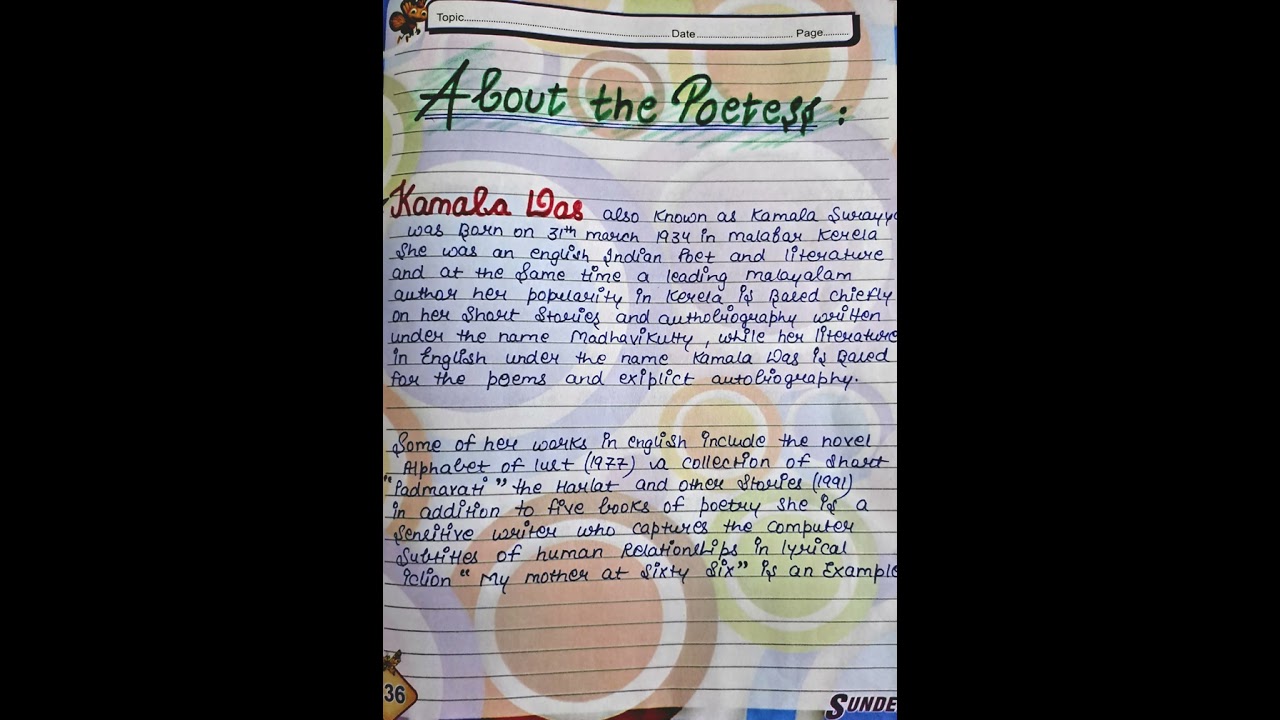 Topic
Date
Page
About the Poetess :
Kamala Das also known as Kamala Surayya
was Born on 31th march 1934 in malabar Kerela
She was an english Indian Poet and literature
and at the same time a leading malayalam
author her popularity in Kerela is Based chiefly
on her Short Stories and authobiography written
under the name Madhavikutty, while her literature
in English under the name Kamala Das is Based
for the poems and exiplict autobiography.
Some of her works in english include the novel
Alphabet of lust (1977) a collection of short
"Padmavati" the Harlat and other Stories (1991)
in addition to five books of poetry she is a
Sensitive writer who captures the computer
Subtitles of human Relationships in lyrical
"My mother at Sixty Six" is an Example
36
SUNDE